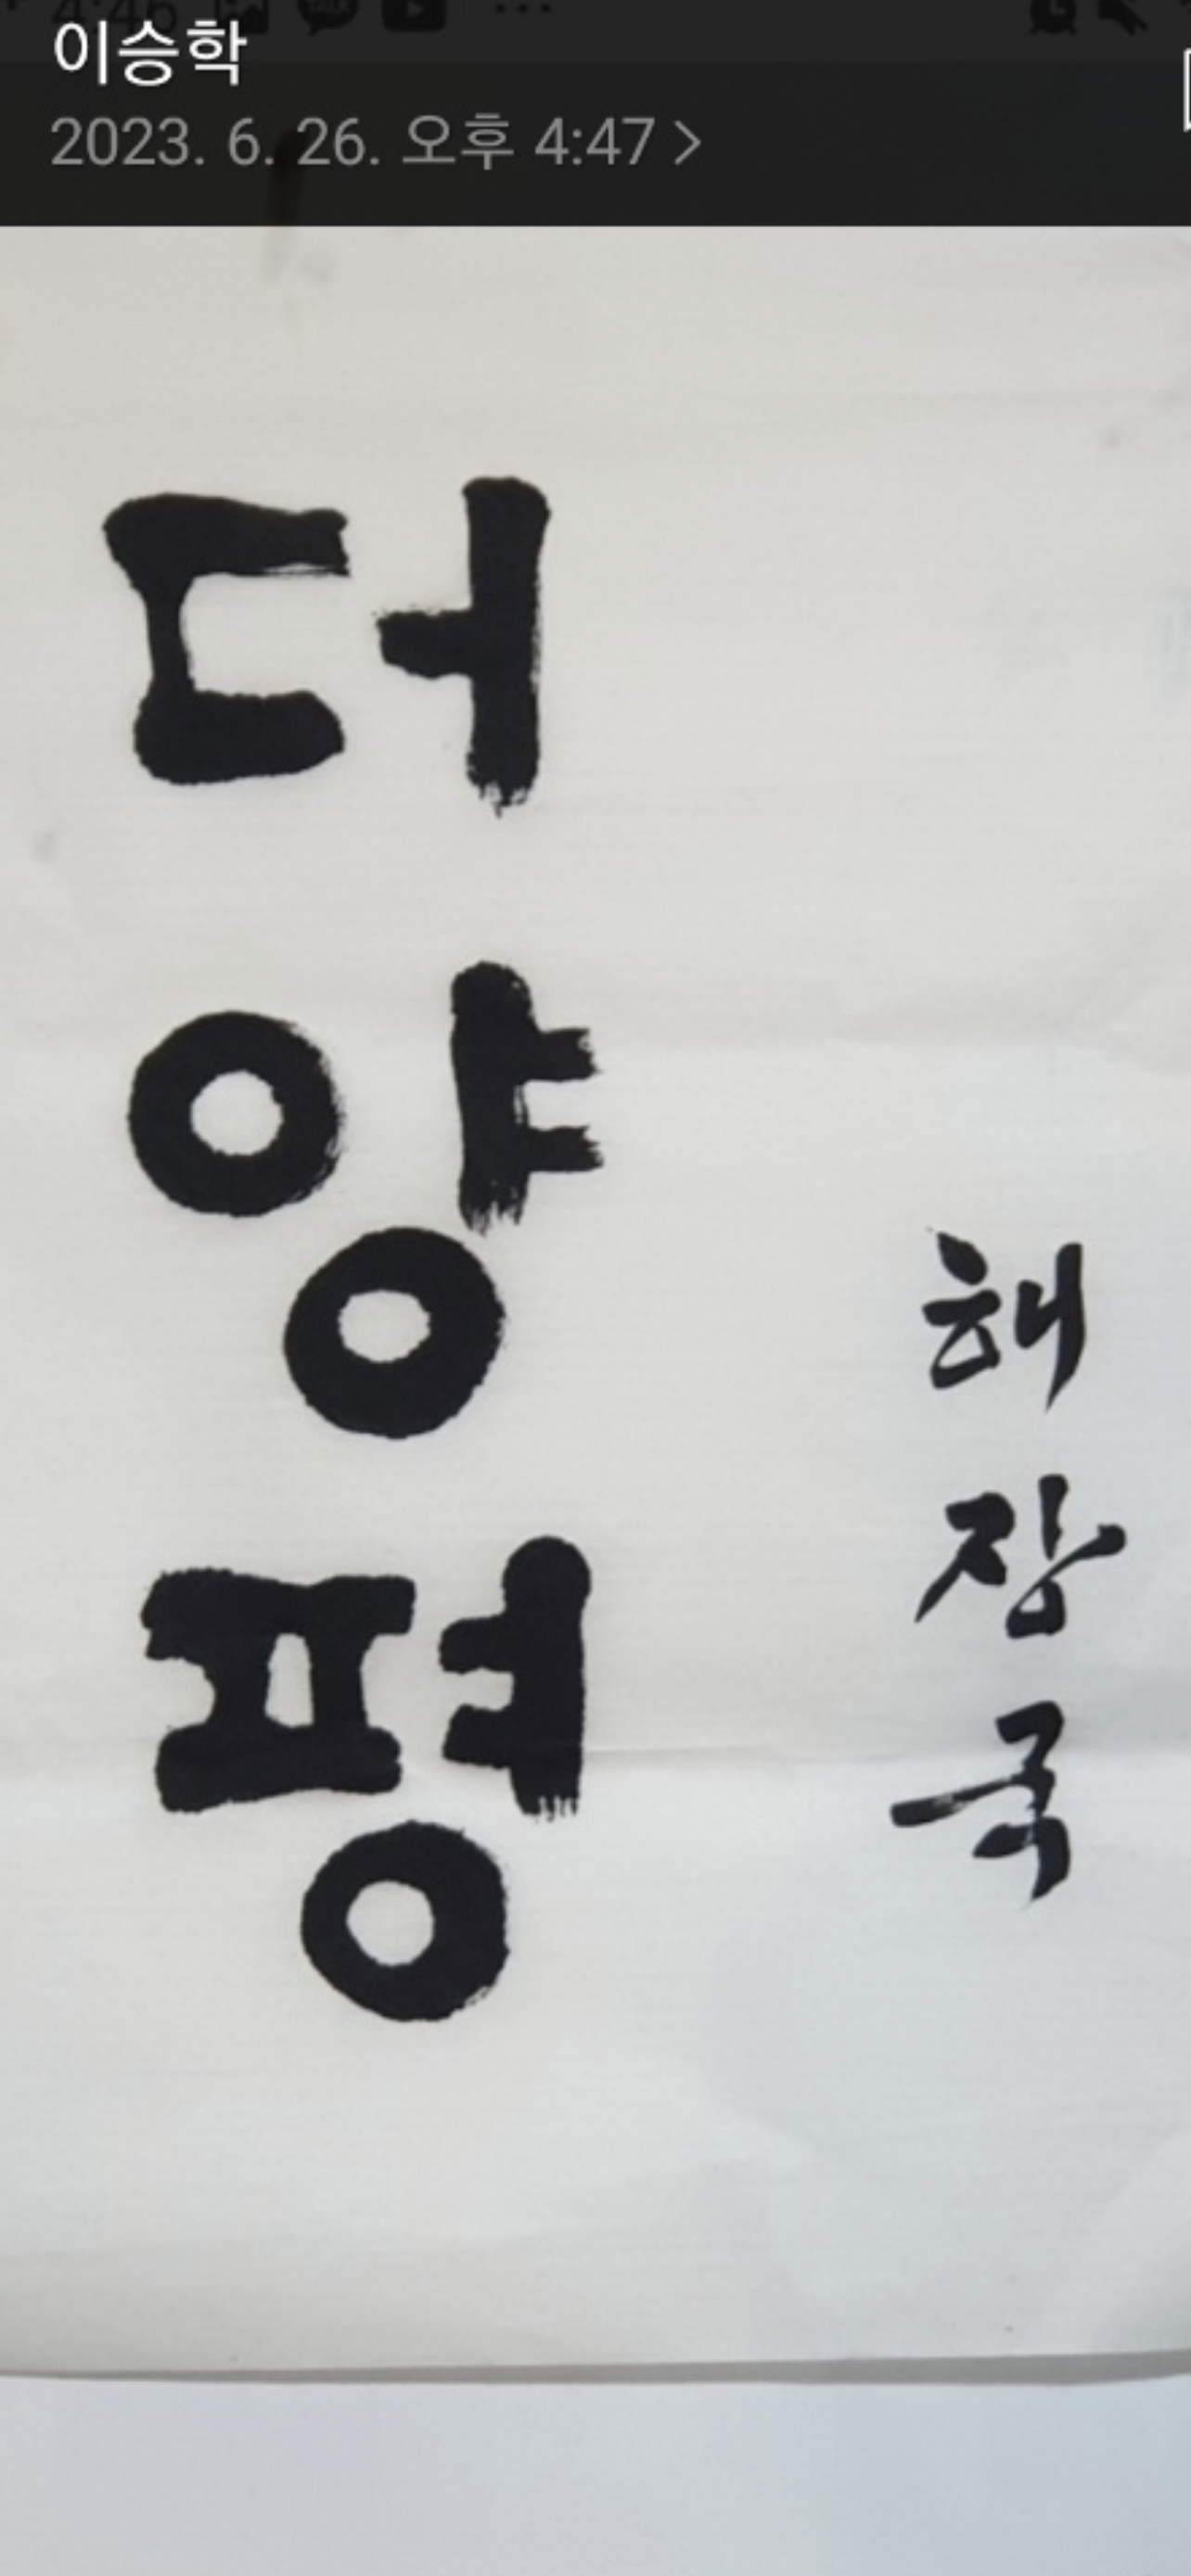 4:46
이승학
2023. 6. 26. 오후 4:47
더양평
해장국